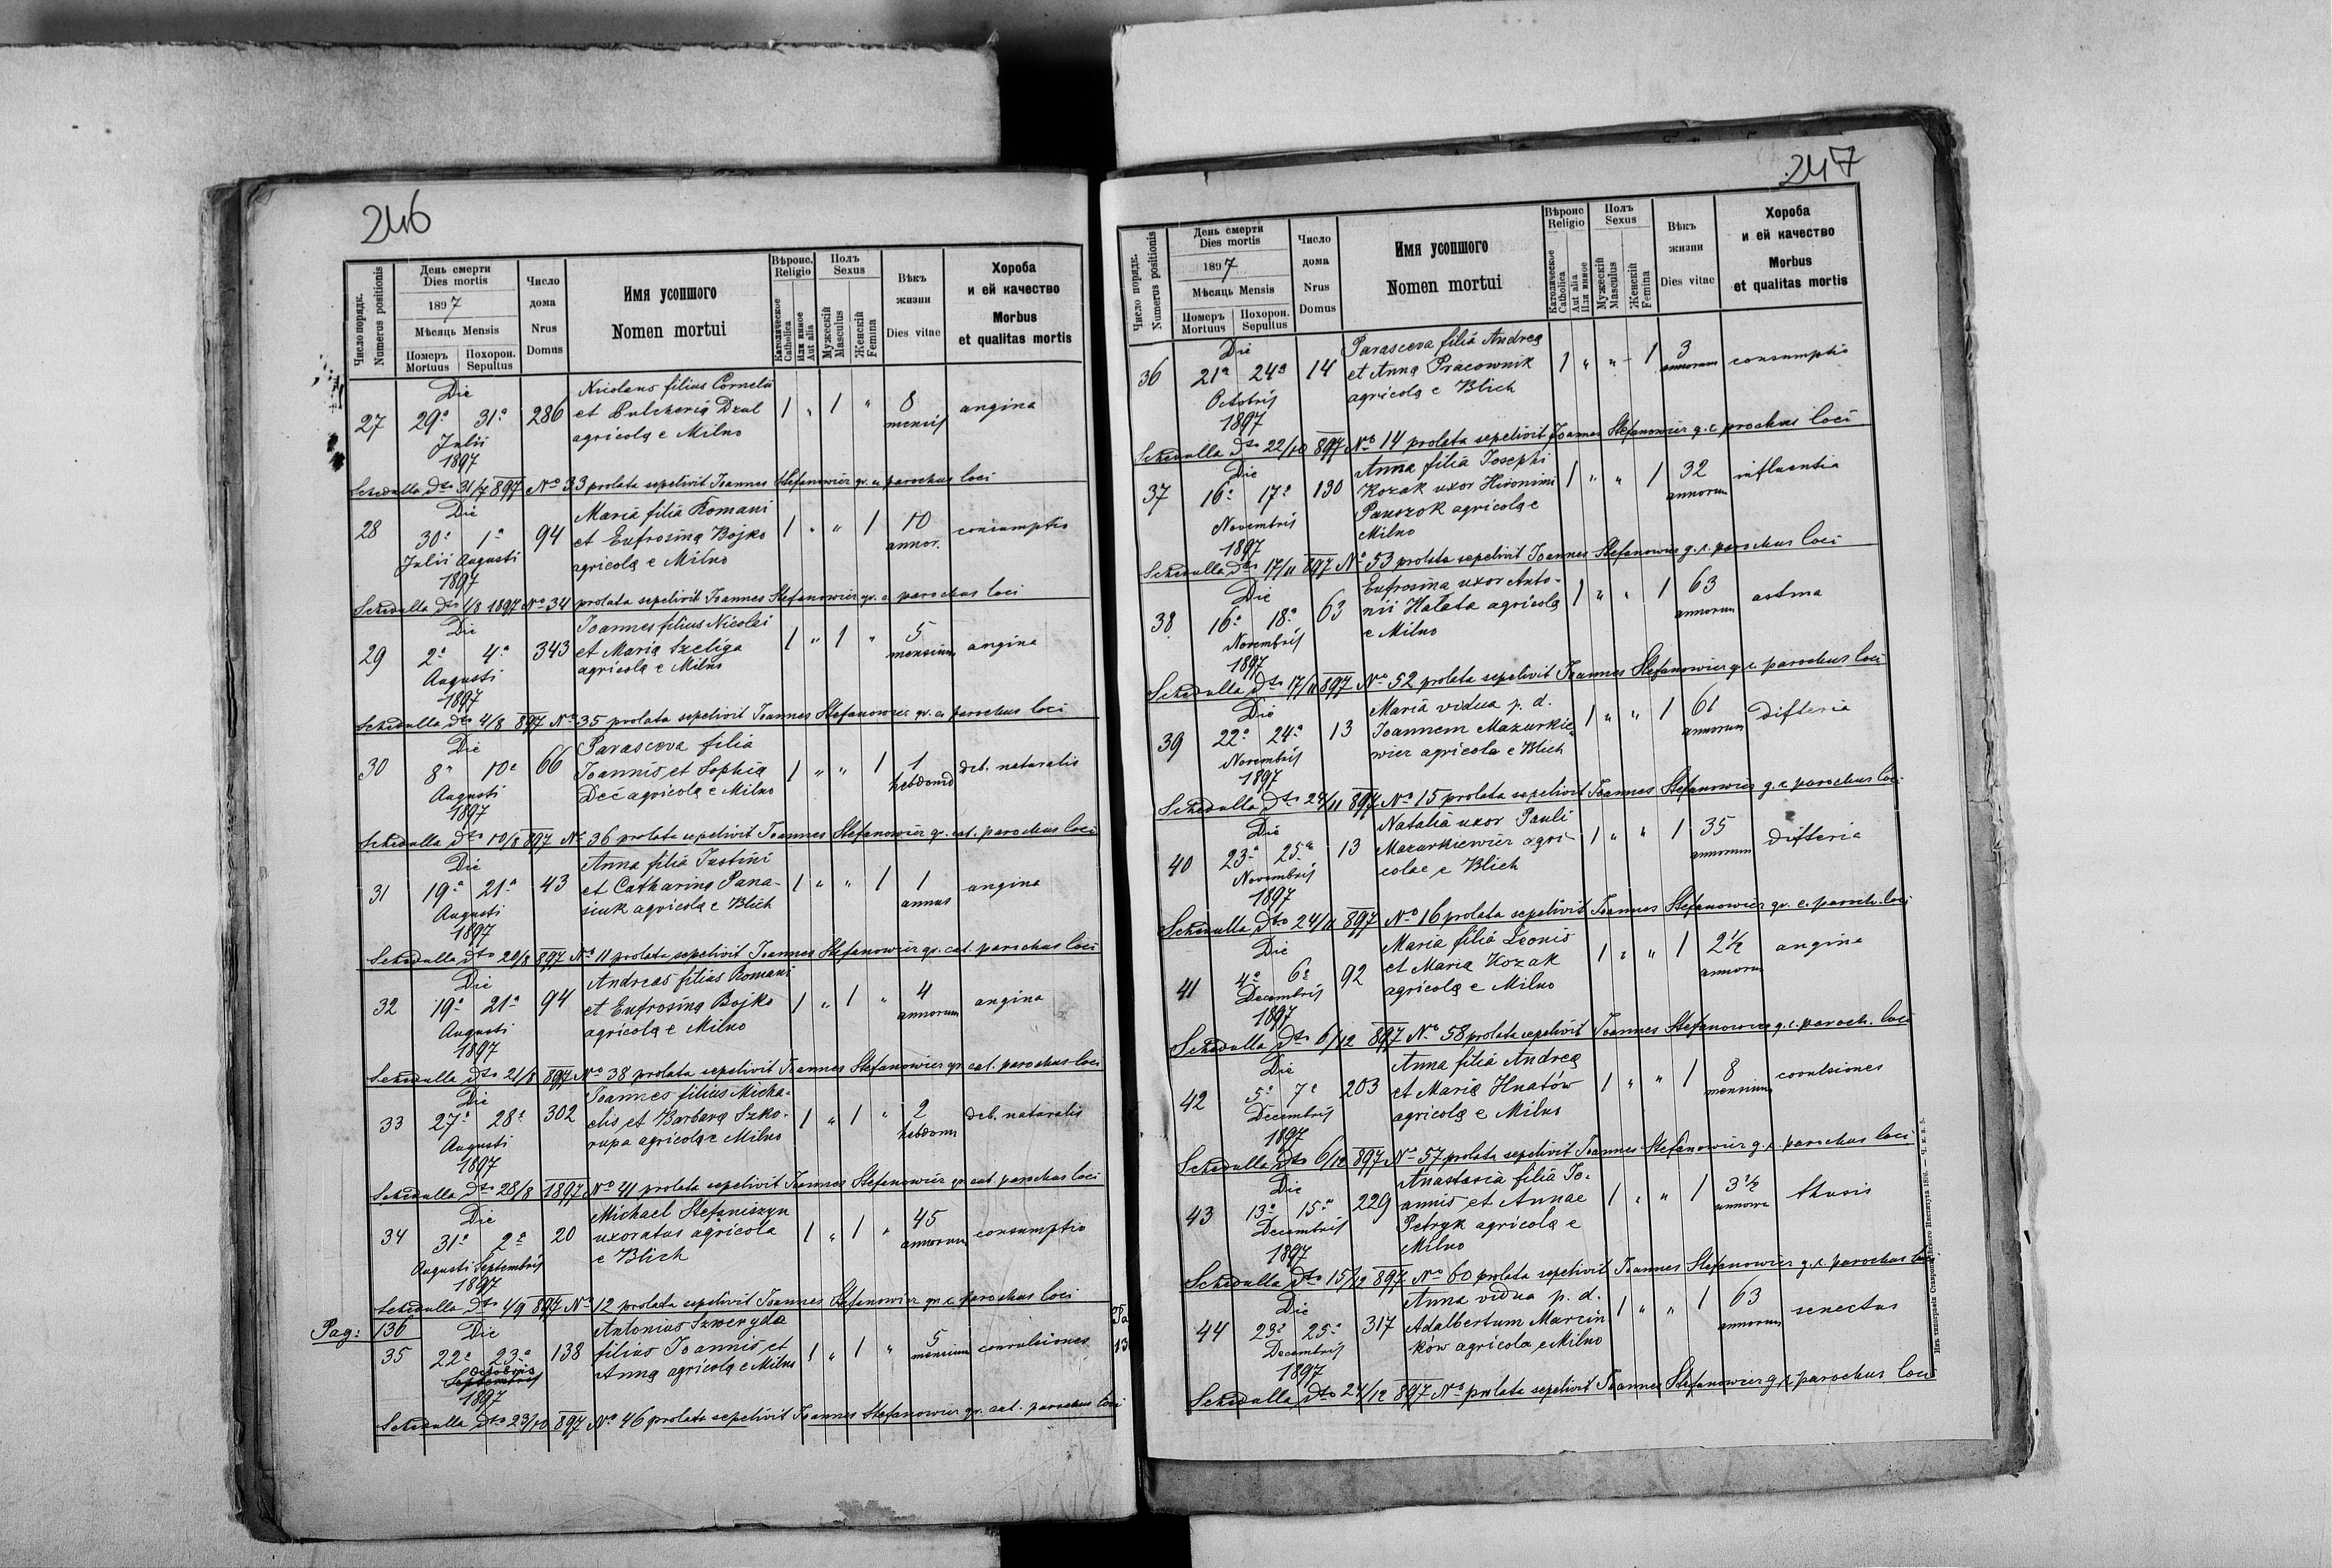 246
Число порядк.
Numerus positionis
День смерти
Dies mortis
1897
Мѣсяць Mensis
Померъ
Mortuus
Похорон.
Sepultus
Число
дома
Nrus
Domus
Имя усопшого
Nomen mortui
Вѣроис.
Religio
Католическое
Catholica
Или инное
Aut alia
Полъ
Sexus
Мужескій
Masculus
Женскій
Femina
Вѣкъ
жизни
Dies vitae
Хороба
и ей качество
Morbus
et qualitas mortis
Die
Nicolaus filius Cornelii
27 29a 31a 286 et Pulcheria Dzul 1 " 1 " 8 angina
Julii agricola e Milno mensis
1897
Schedulla dto 31/7 897 No 33 prolata sepelivit Joannes Stefanowicz gr. c. parochus loci
Die Maria filia Romani
28 30a 1a 94 et Eufrosina Bojko 1 " " 1 10 consumptio
Julii Augusti agricola e Milno annor.
1897
Schedulla dto 1/8 1897 No 34 prolata sepelivit Joannes Stefanowicz gr. c. parochus loci
Die Joannes filius Nicolai
29 2a 4a 343 et Maria Szeliga 1 " 1 " 5 angina
Augusti agricola e Milno mensium
1897
Schedulla dto 4/8 897 No 35 prolata sepelivit Joannes Stefanowicz gr. c. parochus loci
Die Parasceva filia
30 8a 10a 66 Joannis et Sophia 1 " " 1 1 deb. naturalis
Augusti Deć agricola e Milno hebdomd
1897
Schedulla dto 10/8 897 No 36 prolata sepelivit Joannes Stefanowicz gr. cat. parochus loci
Die Anna filia Justini
31 19a 21a 43 et Catharina Pana- 1 " " 1 1 angina
Augusti siuk agricola e Blich annus
1897
Schedulla dto 20/8 897 No 11 prolata sepelivit Joannes Stefanowicz gr. cat. parochus loci
Die Andreas filius Romani
32 19a 21a 94 et Eufrosina Bojko 1 " 1 " 4 angina
Augusti agricola e Milno annorum
1897
Schedulla dto 21/8 897 No 38 prolata sepelivit Joannes Stefanowicz gr. cat. parochus loci
Die Joannes filius Micha-
33 27a 28a 302 elis et Barbara Szko- 1 " 1 " 2 deb. naturalis
Augusti rupa agricola e Milno hebdom
1897
Schedulla dto 28/8 1897 No 41 prolata sepelivit Joannes Stefanowicz gr. cat. parochus loci
Die Michael Stefaniszyn
34 31a 2a 20 uxoratus agricola 1 " 1 " 45 consumptio
Augusti Septembris e Blich annorum
1897
Schedulla dto 1/9 897 No 12 prolata sepelivit Joannes Stefanowicz gr. c. parochus loci
Pag: 136 Die Antonius Szweryda
35 22a 23a 138 filius Joannis et 1 " 1 " 5 convulsiones
Octobris Anna agricola e Milno mensium
Septembris
1897
Schedulla dto 23/10 897 No 46 prolata sepelivit Joannes Stefanowicz gr. cat. parochus loci
247
Число порядк.
Numerus positionis
День смерти
Dies mortis
1897
Мѣсяць Mensis
Померъ
Mortuus
Похорон.
Sepultus
Число
дома
Nrus
Domus
Имя усопшого
Nomen mortui
Вѣроис
Religio
Католическое
Catholica
Aut alia
Или инное
Полъ
Sexus
Мужескій
Masculus
Женскій
Femina
Вѣкъ
жизни
Dies vitae
Хороба
и ей качество
Morbus
et qualitas mortis
Die Parasceva filia Andrea
36 21a 24a 14 et Anna Pracownik 1 " " 1 3 consumptio
Octobris agricola e Blich annorum
1897
Schedulla dto 22/10 897 No 14 prolata sepelivit Joannes Stefanowicz g. c. prochus loci
Die Anna filia Josephi
37 16a 17a 130 Kozak uxor Hieronimi 1 " " 1 32 influentia
Novembris Panszok agricola e annorum
1897 Milno
Schedulla dto 17/11 897 No 53 prolata sepelivit Joannes Stefanowicz g. c. parochus loci
Die Eufrosina uxor Anto-
38 16a 18a 63 nii Halata agricola 1 " " 1 63 astma
Novembris e Milno annorum
1897
Schedulla dto 17/11 897 No 52 prolata sepelivit Joannes Stefanowicz g. c. parochus loci
Die Maria vidua p. d.
39 22a 24a 13 Joannem Mazurkie- 1 " " 1 61 difteria
Novembris wicz agricola e Blich annorum
1897
Schedulla dto 24/11 897 No 15 prolata sepelivit Joannes Stefanowicz g. c. parochus loci
Die Natalia uxor Pauli
40 23a 25a 13 Mazurkiewicz agri- 1 " " 1 35 difteria
Novembris colae e Blich annorum
1897
Schedulla dto 24/11 897 No 16 prolata sepelivit Joannes Stefanowicz gr. c. paroch. loci
Die Maria filia Leonis
41 4a 6a 92 et Maria Kozak 1 " " 1 2½ angina
Decembris agricola e Milno annorum
1897
Schedulla dto 6/12 897 No 58 prolata sepelivit Joannes Stefanowicz g. c. paroch. loci
Die Anna filia Andrea
42 5a 7a 203 et Maria Hnatów 1 " " 1 8 covulsiones
Decembris agricola e Milno mensium
1897
Schedulla dto 6/12 897 No 57 prolata sepelivit Joannes Stefanowicz g. c. parochus loci
Die Anastasia filia Jo-
43 13a 15a 229 annis et Annae 1 " " 1 3½ thusis
Decembris Petryk agricola e annorum
1897 Milno
Schedulla dto 15/12 897 No 60 prolata sepelivit Joannes Stefanowicz g. c. parochus loci
Die Anna vidua p. d.
44 23a 25a 317 Adalbertum Marcin 1 " " 1 63 senectus
Decembris ków agricola e Milno annorum
1897
Schedulla dto 24/12 897 No prolata sepelivit Joannes Stefanowicz g. c. parochus loci